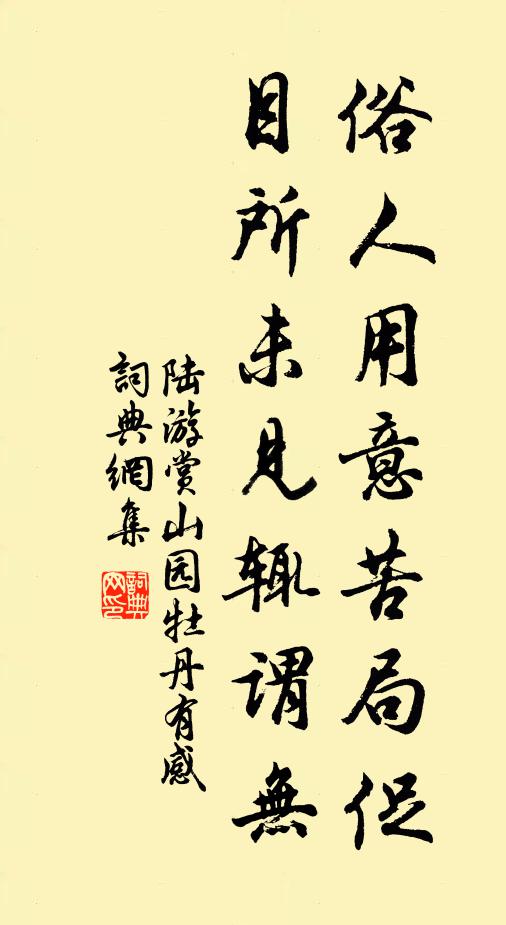 俗人用意苦局促
目所未见辄謂無
陆游赏山园牡丹有感
詞典網集
詞典網印